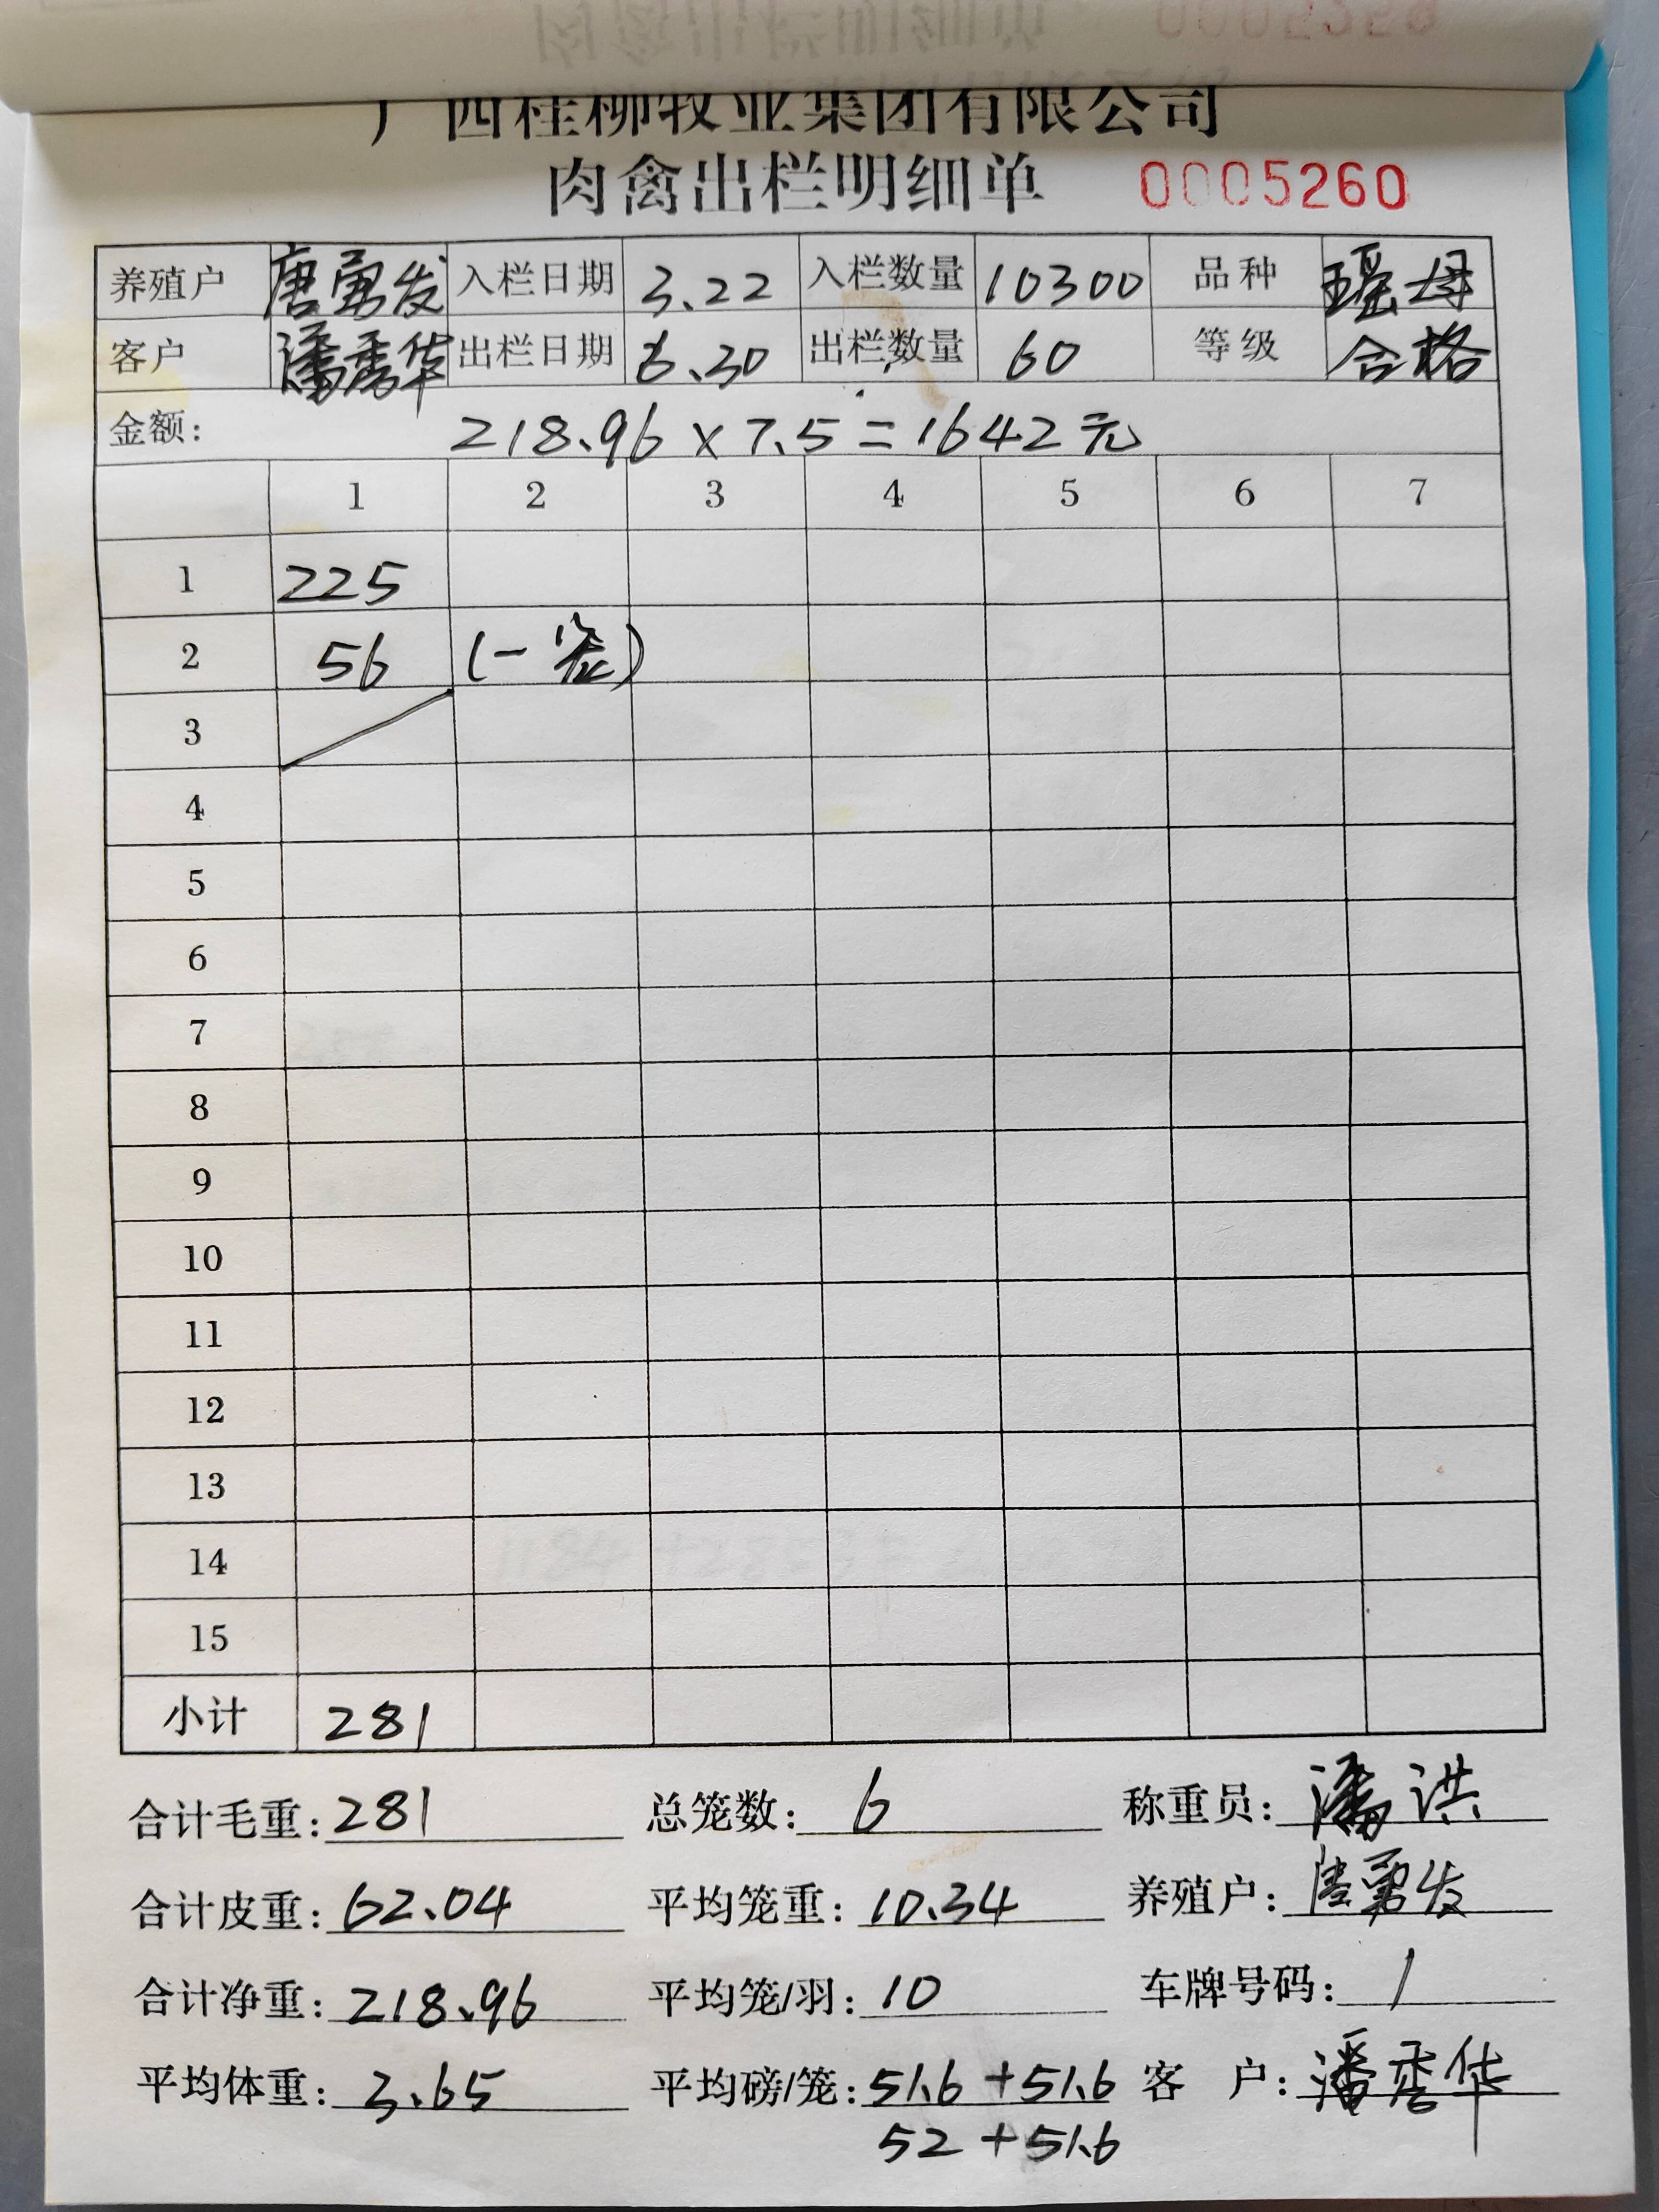 广西桂柳牧业集团有限公司
肉禽出栏明细单 0005260
养殖户 唐勇发 入栏日期 3.22 入栏数量 10300 品种 瑶母
客户 潘秀华 出栏日期 6.30 出栏数量 60 等级 合格
金额: 218.96 × 7.5 = 1642元
1 2 3 4 5 6 7
1 225
2 56 (一笼)
3
4
5
6
7
8
9
10
11
12
13
14
15
小计 281
合计毛重: 281 总笼数: 6 称重员: 潘洪
合计皮重: 62.04 平均笼重: 10.34 养殖户: 唐勇发
合计净重: 218.96 平均笼/羽: 10 车牌号码: /
平均体重: 3.65 平均磅/笼: 51.6 + 51.6 客 户: 潘秀华
52 + 51.6